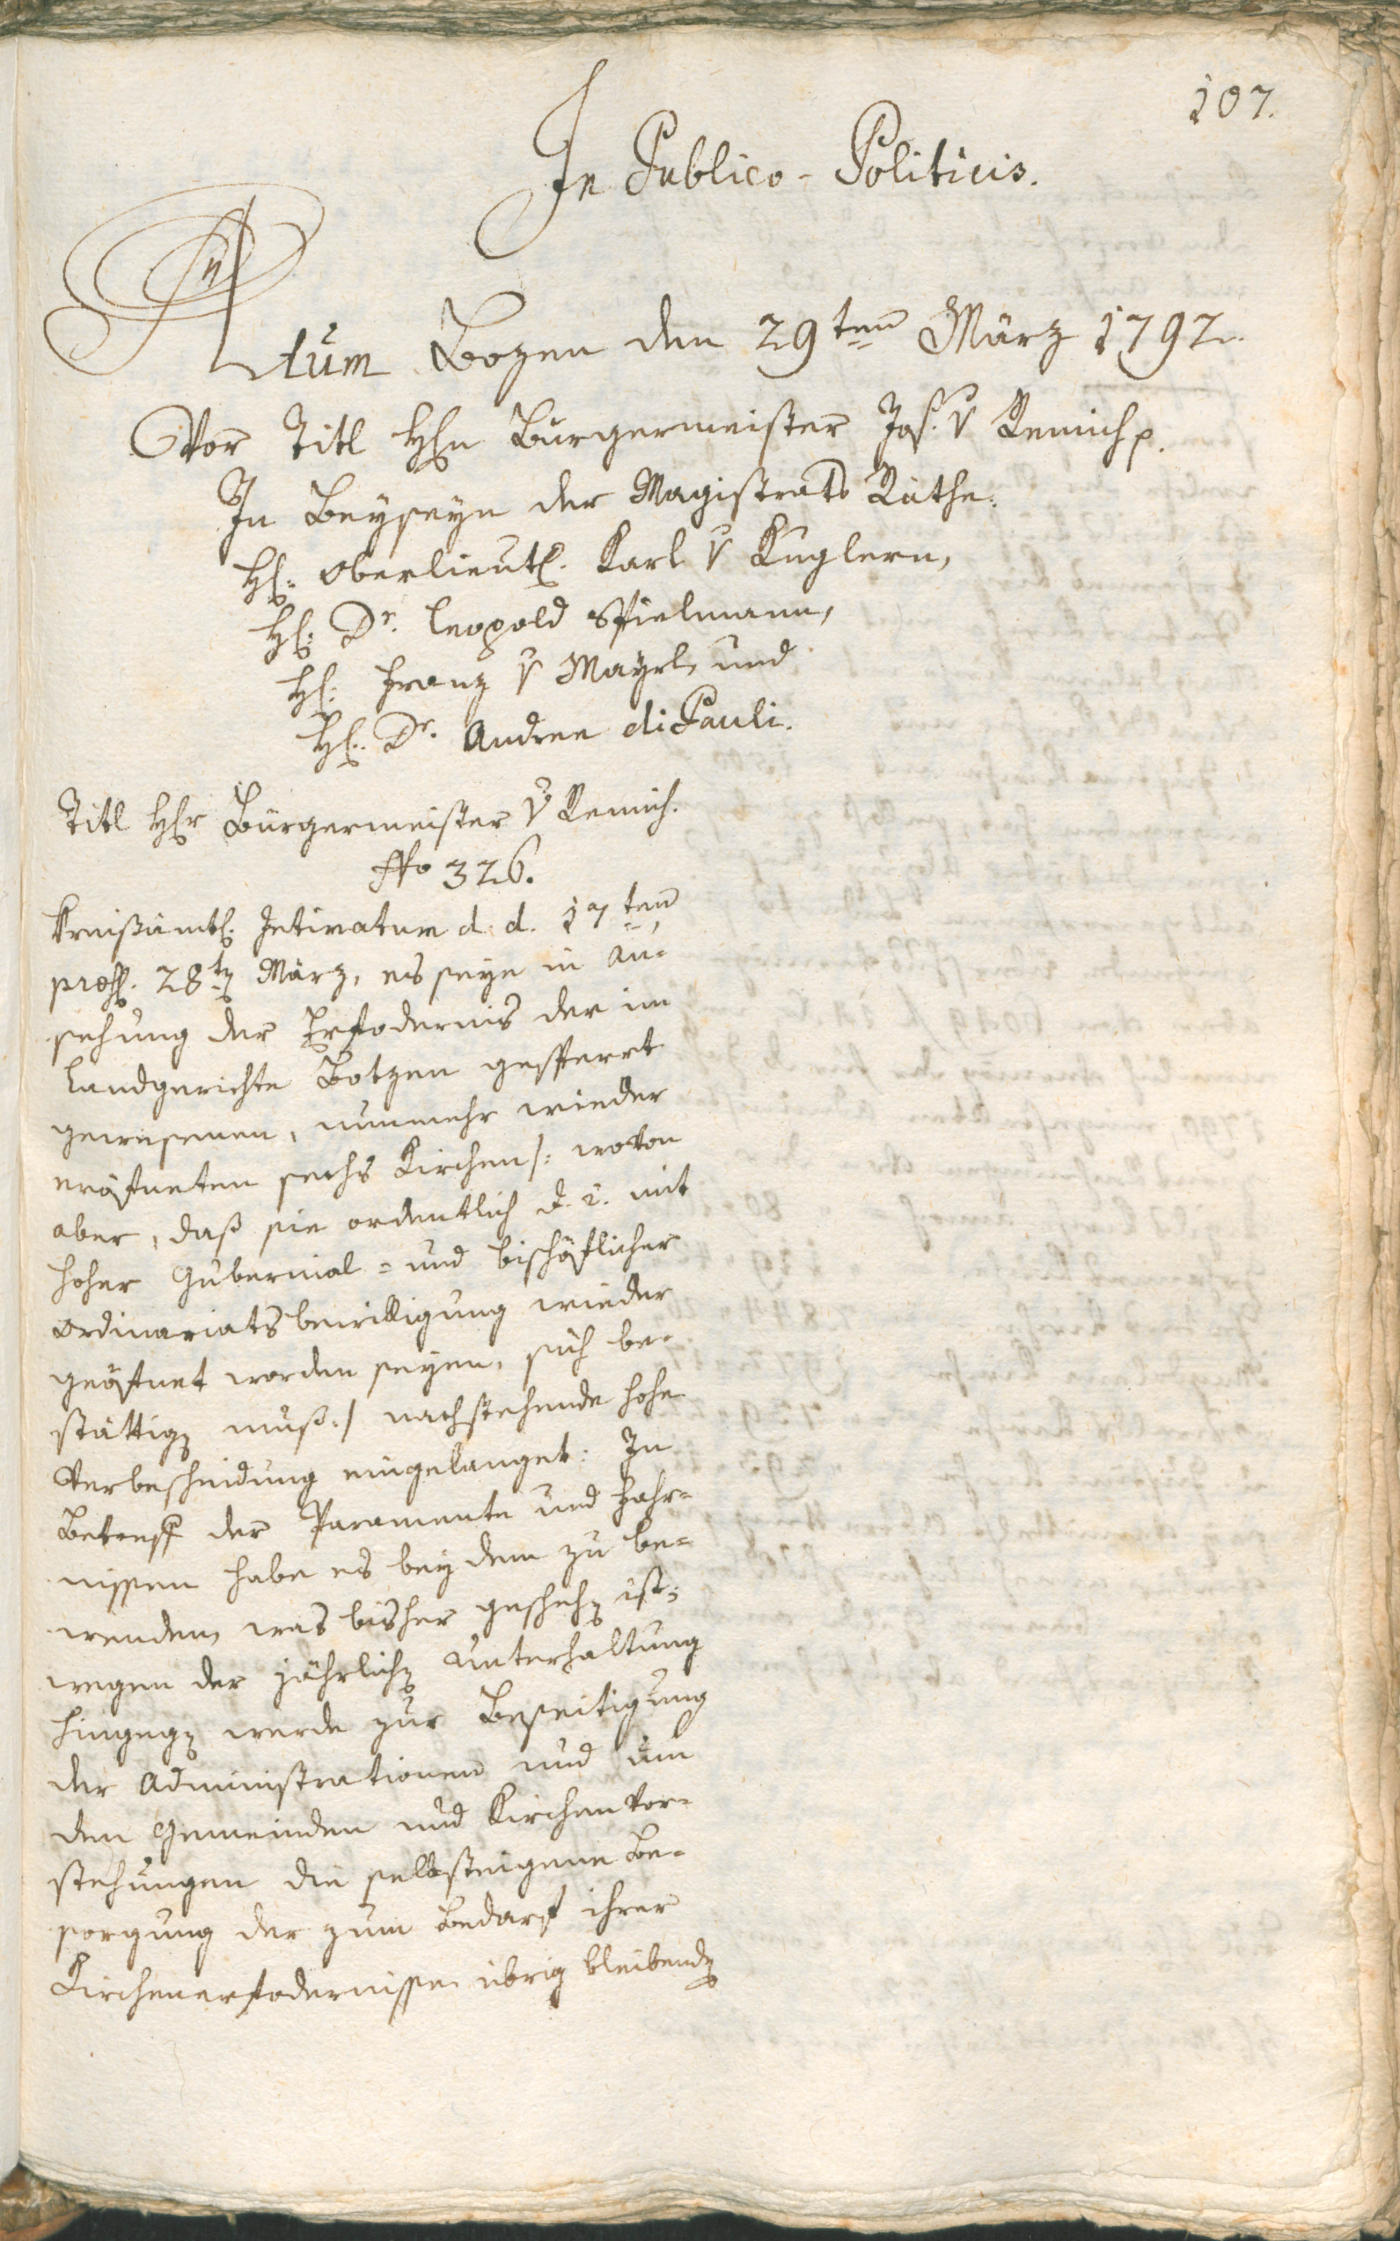 107.
In Publico-Politicis.
Actum Bozen den 29ten März 1792.
Vor Titl Hhn Bürgermeister Jos. v Remich p.
In Beyseyn der Magistrats Räthe.
Hl: Oberlieutl. Karl v Kuglern,
Hl: Dr. Leopold Spielmann,
Hl: Franz v Mayrl, und
Hl: Dr. Andree diPauli.
Titl Hhr Bürgermeister v Remich.
No 326.
Kreißämtl. Intimatum d. d. 17ten
præs. 28tn März, es seye in An-
sehung der Erfodernis der im
Landgerichte Botzen gesperrt
gewesenen, nunmehr wieder
eröfneten sechs Kirchen /: wovon
aber, daß sie ordentlich d. i. mit
hoher Gubernial- und bischöflicher
Ordinariatsbewilligung wieder
geöfnet worden seyen, sich be-
stättign muß :/ nachstehende hohe
Verbescheidung eingelanget: In
Betreff der Paramente und Fahr-
nissen habe es bey dem zu be-
wenden, was bisher geschehn ist;
wegen der jährlichn Unterhaltung
hingegn werde zur Beseitigung
der Administrationen und um
den Gemeinden und Kirchenvor-
stehungen die selbsteigene Be-
sorgung der zum Bedarf ihrer
Kirchenerfodernissen übrig bleibendn